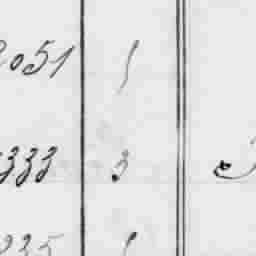 2051 1
333 3
335 1